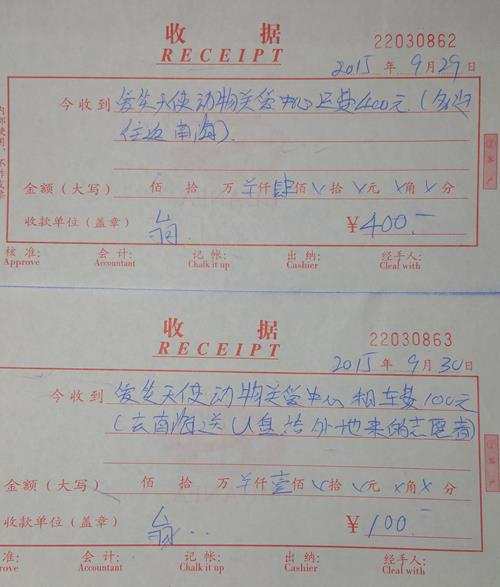 收 据
RECEIPT
22030862
2015年 9月29日
今收到 爱生天使动物关爱中心运费400元(
南海)
金额(大写) 佰 拾 万 仟肆佰×拾×元×角×分
收款单位(盖章) ¥400.-
核准: 会计: 记帐: 出纳: 经手人:
Approve Accountant Chalk it up Cashier Cleal with
收 据
RECEIPT
22030863
2015年 9月30日
今收到 爱生天使动物关爱中心租车费100元
(去南海送U盘给外地来的志愿者)
金额(大写) 佰 拾 万 仟壹佰×拾×元×角×分
收款单位(盖章) ¥100.-
准: 会计: 记帐: 出纳: 经手人:
prove Accountant Chalk it up Cashier Cleal with